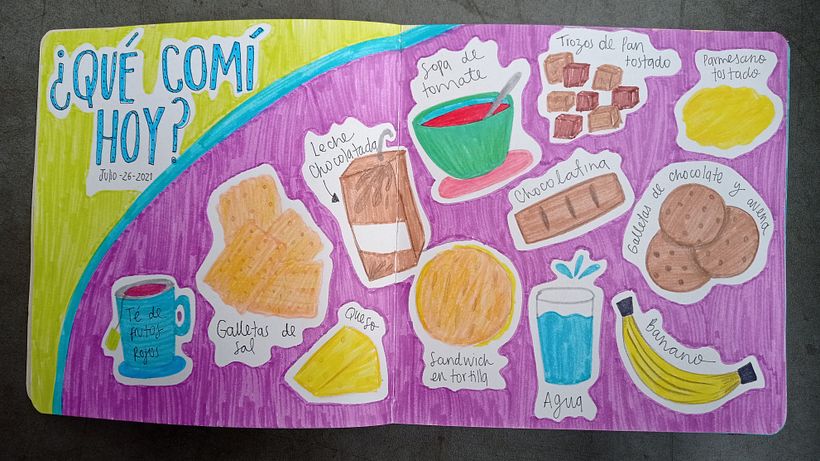 ¿QUÉ COMÍ
HOY?
Julio-26-2021
Sopa de
tomate
Trozos de Pan
tostado
Parmesano
tostado
Leche
Chocolatada
Chocolatina
Galletas de chocolate y avena
Té de
frutos
rojos
Galletas de
sal
Queso
Sandwich
en tortilla
Agua
Banano